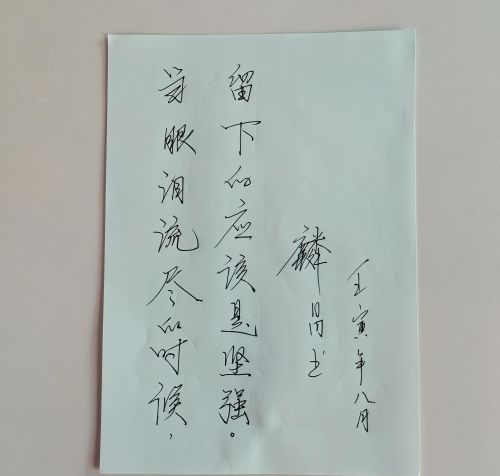 当眼泪流尽的时候，
留下的应该是坚强。
麟昌书
壬寅年八月